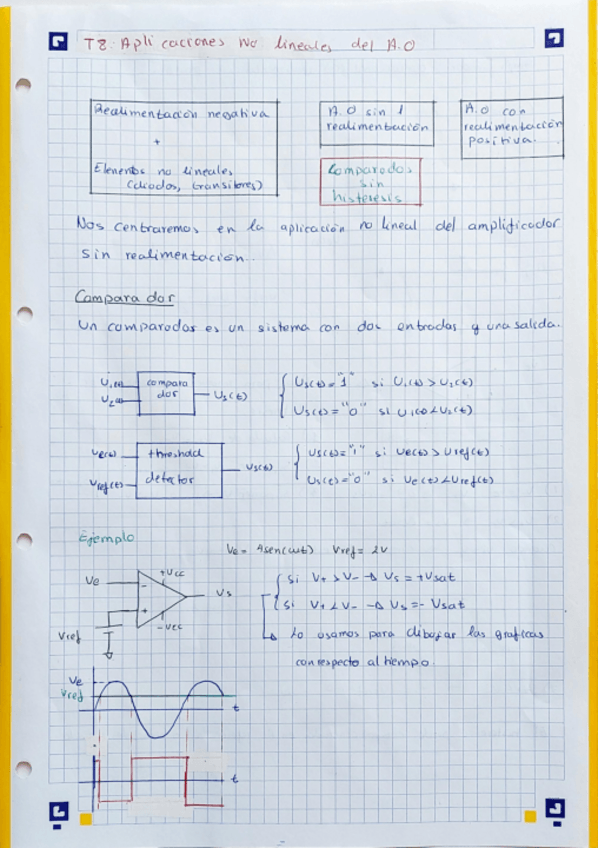 T8: Aplicaciones No lineales del A.O
Realimentación negativa
+
Elementos no lineales
(diodos, transitores)
A.O sin
realimentación
A.O con
realimentación
positiva.
Comparador
sin
histeresis
Nos centraremos en la aplicación no lineal del amplificador
sin realimentación.
Comparador
Un comparador es un sistema con dos entradas y una salida.
U₁(t)
U₂(t)
compara
dor
Us(t)
Us(t)="1" si U₁(t)>U₂(t)
Us(t)="0" si U₁(t)<U₂(t)
Ve(t)
Vref(t)
threshold
detector
Vs(t)
Us(t)="1" si Ve(t)>Uref(t)
Us(t)="0" si Ve(t)<Uref(t)
Ejemplo
Ve = 4sen(wt) Vref = 2V
Ve
+Vcc
-
+
Vs
-Vcc
Vref
Si V+ > V- → Vs = +Vsat
Si V+ < V- → Vs = - Vsat
Lo usamos para dibujar las graficas
con respecto al tiempo.
Ve
Vref
t
t